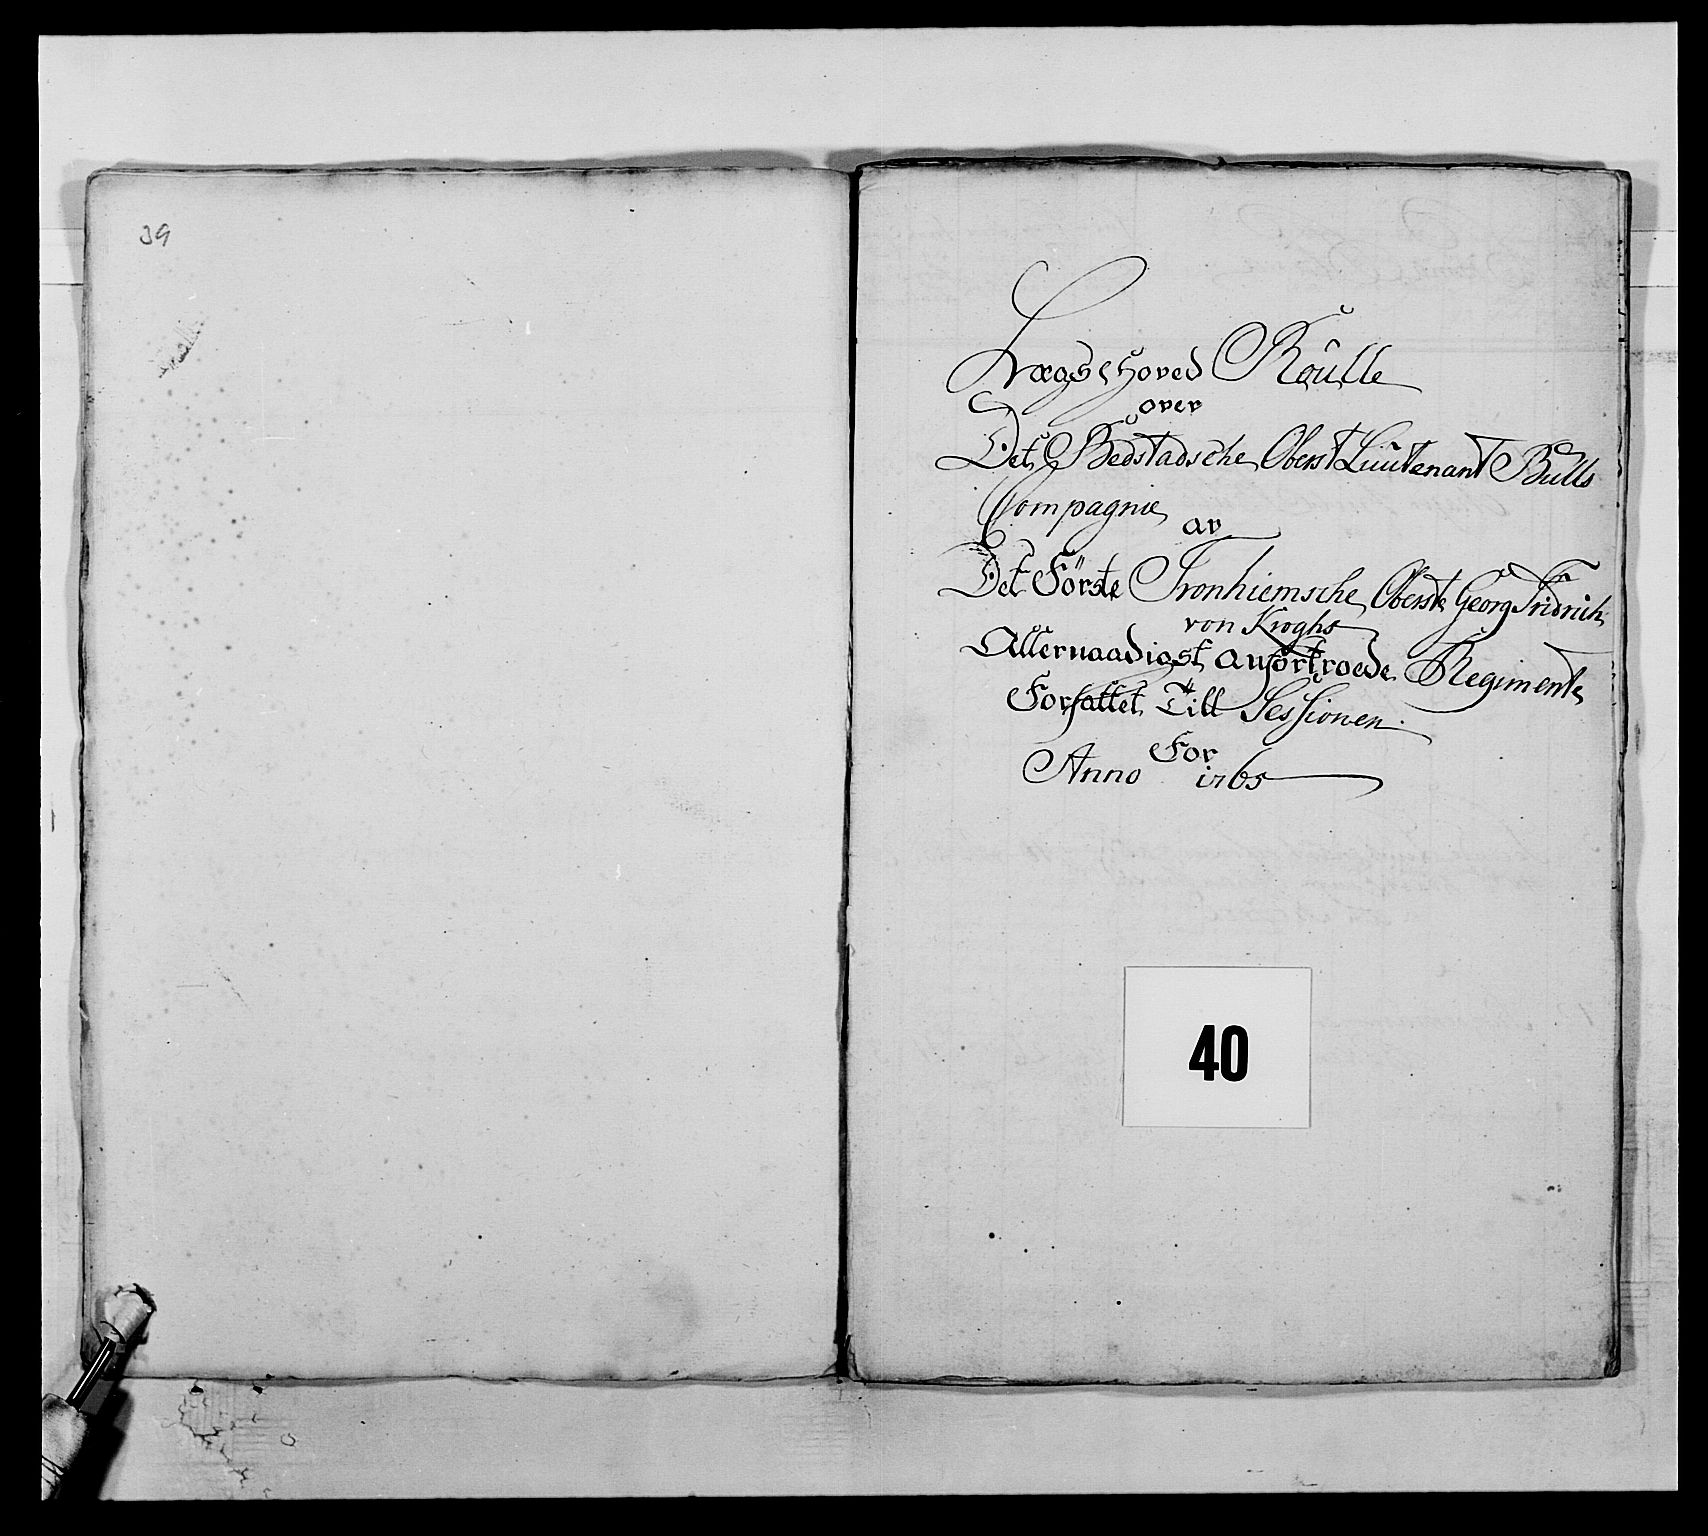 39
Lægs Hoved Roülle
over
Det Bedstadsche Oberst Liutenant Bulls
Compagnie
av
Det Förste Tronhiemsche Oberste Georg Fridrich
von Kroghs
Allernaadigst anfortroede Regiments
Forfattet Till Sessionen
For
Anno 1765
40